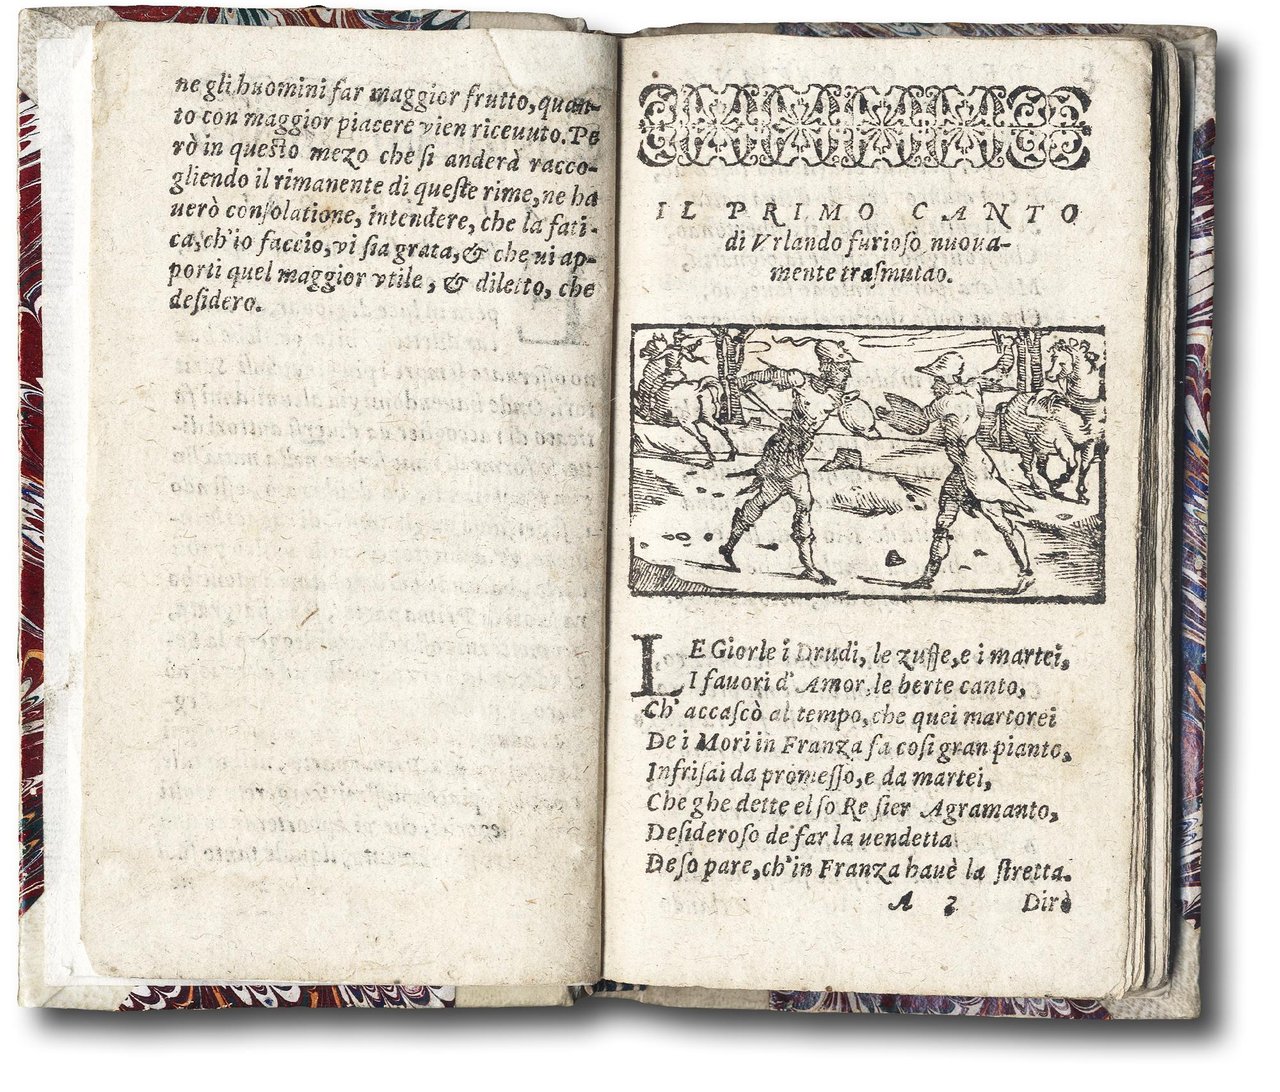 ne gli huomini far maggior frutto, quan-
to con maggior piacere vien riceuuto. Pe
rò in questo mezo che si anderà racco-
gliendo il rimanente di queste rime, ne ha
uerò consolatione, intendere, che la fati-
ca, ch'io faccio, vi sia grata, & che ui ap-
porti quel maggior vtile, & diletto, che
desidero.
IL PRIMO CANTO
di Vrlando furioso nuoua-
mente trasmutao.
LE Giorle i Drudi, le zuffe, e i martei,
I fauori d'Amor, le berte canto,
Ch'accascò al tempo, che quei martorei
De i Mori in Franza fa cosi gran pianto,
Infrisai da promesso, e da martei,
Che ghe dette el so Re sier Agramanto,
Desideroso de far la uendetta
De so pare, ch'in Franza hauè la stretta.
A 3 Dirè